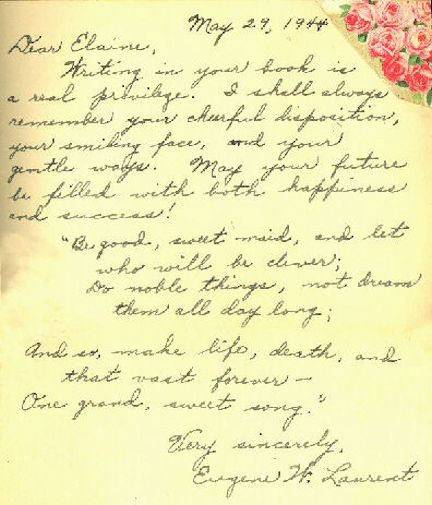 May 29, 1944
Dear Elaine,
Writing in your book is
a real privilege. I shall always
remember your cheerful disposition,
your smiling face, and your
gentle ways. May your future
be filled with both happiness
and success!
"Be good, sweet maid, and let
who will be clever;
Do noble things, not dream
them all day long;
And so, make life, death, and
that vast forever—
One grand, sweet song."
Very sincerely,
Eugene W. Laurent